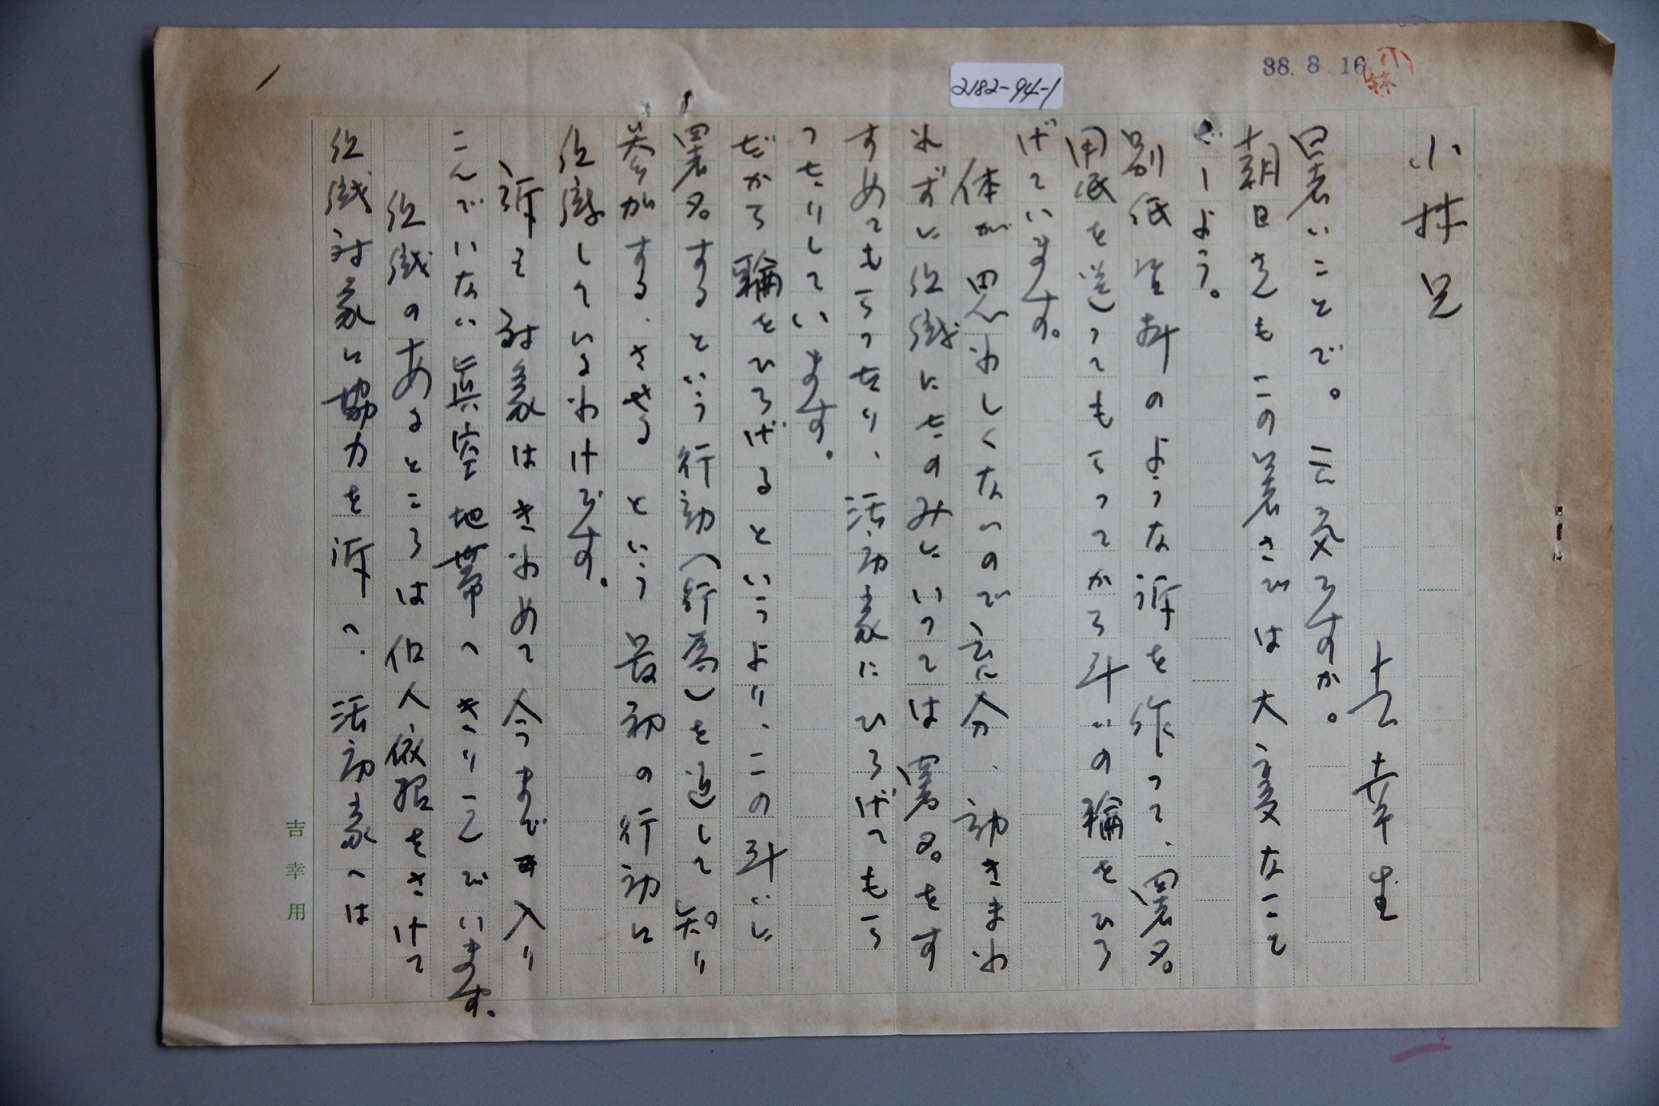 38. 8. 16
小林
2182-94-1
小林兄
吉幸生
暑いことで。元気ですか。
朝日さんもこの暑さでは大変なこと
でしょう。
別紙資料のような訴を作って、署名
用紙を送ってもらってから斗いの輪をひろ
げています。
体が思わしくないので充分、動きまわ
れずに組織にたのみにいっては署名をす
すめてもらったり、活動家にひろげてもら
ったりしています。
だから輪をひろげるというより、この斗いに
署名するという行動(行為)を通して知り
参加する、させるという最初の行動に
組織しているわけです。
訴え対象はきわめて今まで入り
こんでいない真空地帯へきりこんでいます。
組織のあるところは個人依拠をさけて
組織対象に協力を訴へ、活動家へは
吉幸用